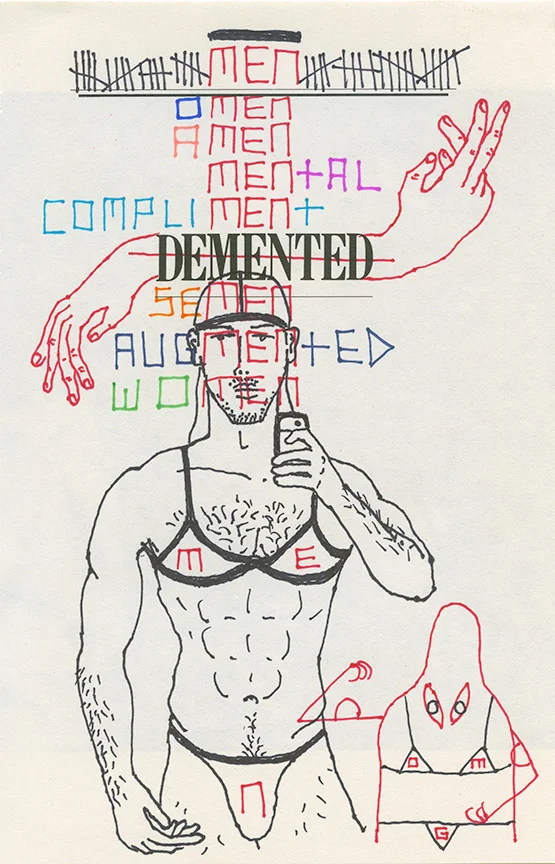 MEN
OMEN
AMEN
MENTAL
COMPLIMENT
DEMENTED
SEMEN
AUGMENTED
WOMEN
M E
N
O M
G